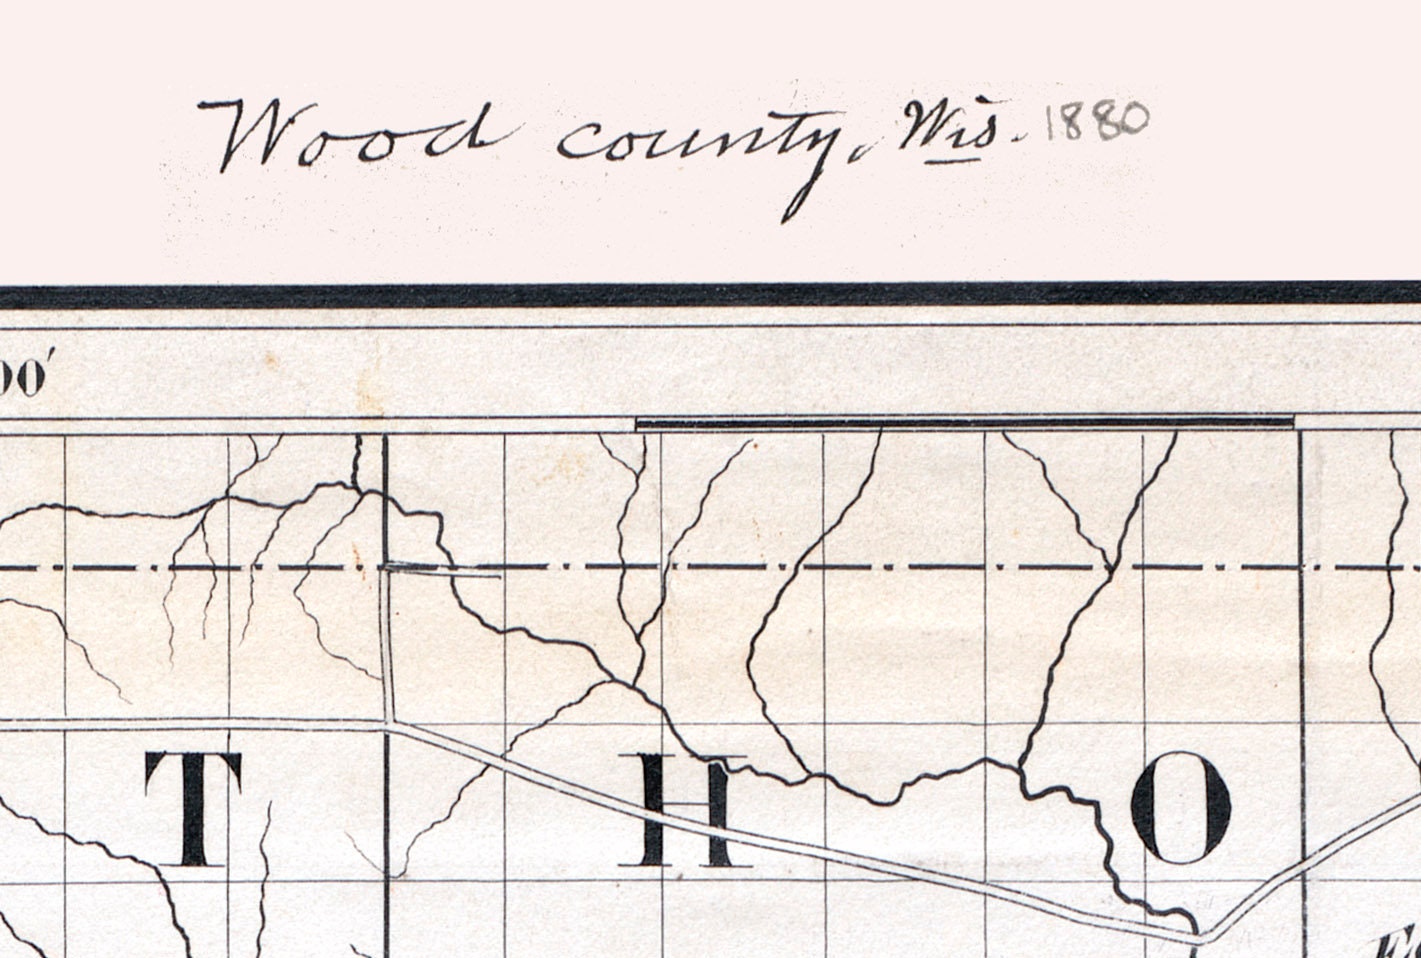 Wood county, Wis. 1880
00′
T H O